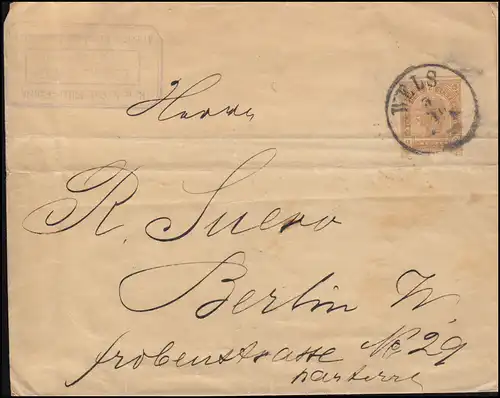 WELS
Herrn
R. Suero
Berlin W.
Frobenstrasse No 29
parterre